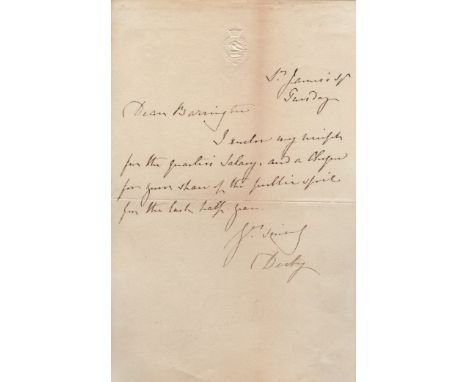 St. James's Sq
Tuesday
Dear Barrington
I enclose my receipt
for the quarter's Salary, and a Cheque
for your share of the public spoil
for the last half year.
Yrs. sincy
Derby